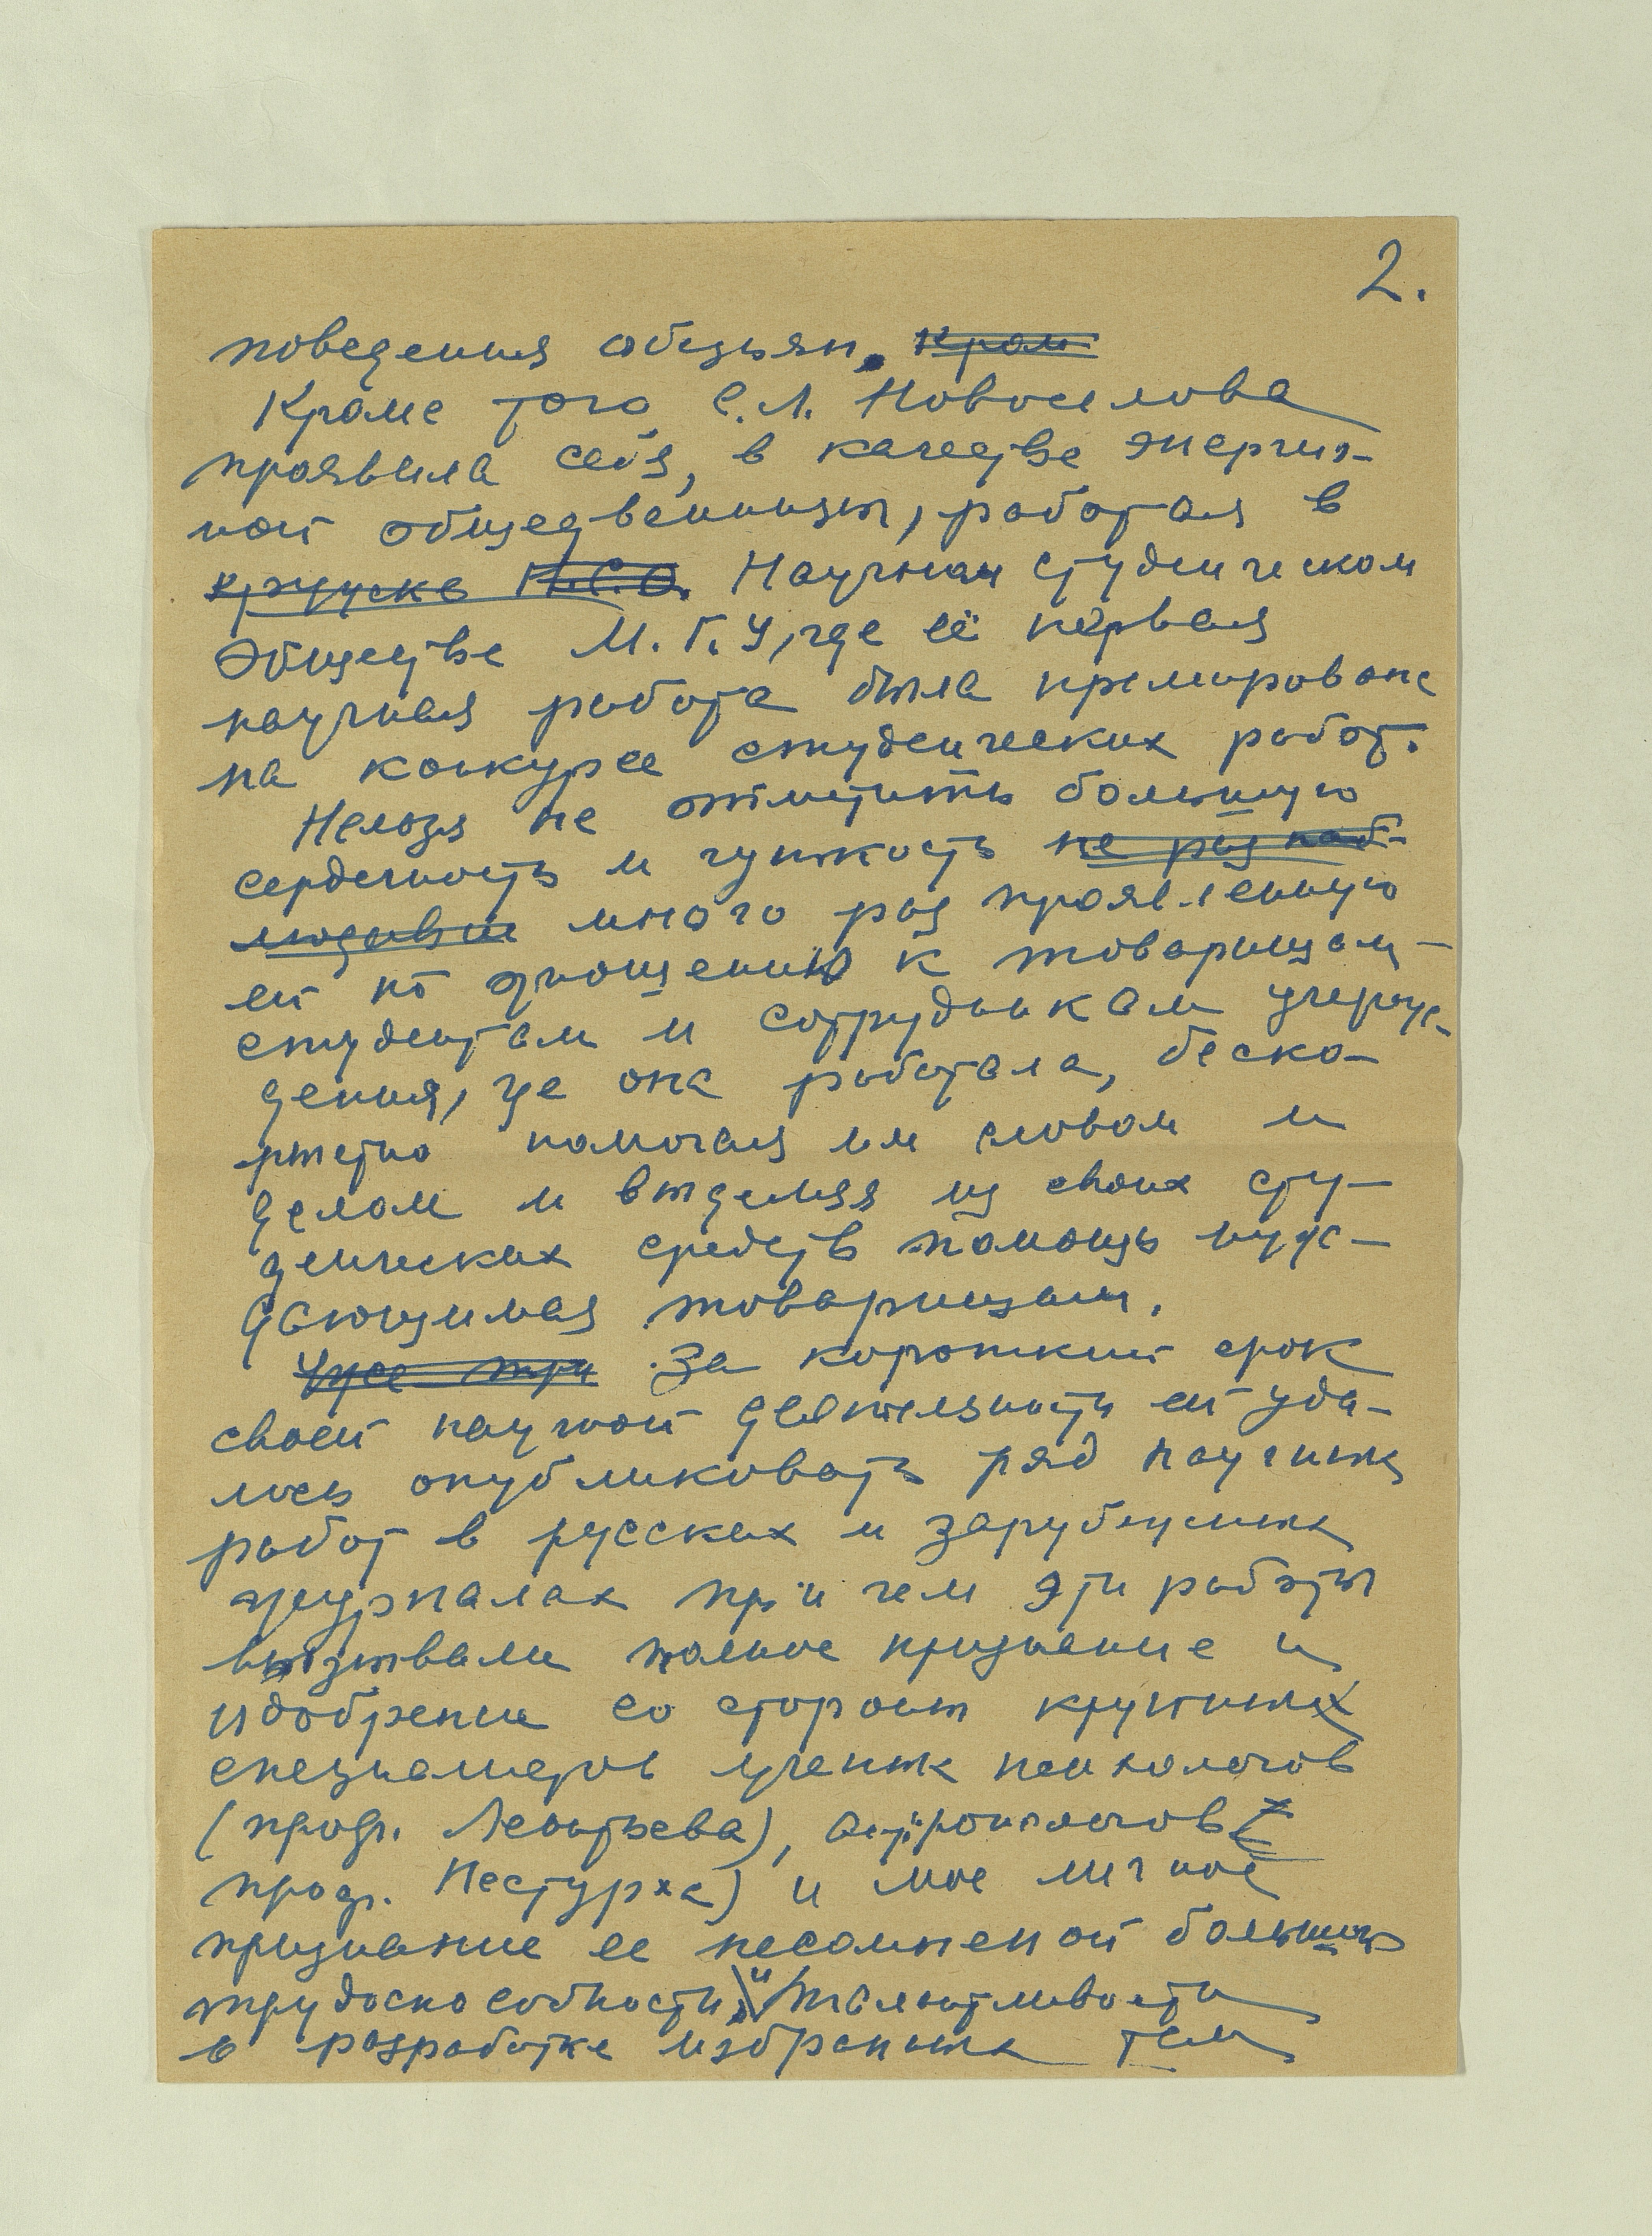 2.
поведения обезьян. Кром
Кроме того С.Л. Новоселова
проявила себя, в качестве энергич-
ной общественницы, работая в
кружке Н.С.О. Научном студенческом
Обществе М.Г.У, где её первая
научная работа была премирована
на конкурсе студенческих работ.
Нельзя не отметить большую
сердечность и чуткость не раз наб-
людавши много раз проявленную
ей по отношению к товарищам –
студентам и сотрудникам учреж-
дения, где она работала, беско-
рыстно помогая им словом и
делом и выделяя из своих сту-
денческих средств помощь нуж-
дающимся товарищам.
Уже три За короткий срок
своей научной деятельности ей уда-
лось опубликовать ряд научных
работ в русских и зарубежных
журналах при чем эти работы
вызывали полное признание и
одобрение со стороны крупных
специалистов ученых психологов
(проф. Леонтьева), антропологов (
проф. Нестурха) и мое личное
признание ее несомненной большой
трудоспособности, и талантливости
в разработке избранных тем